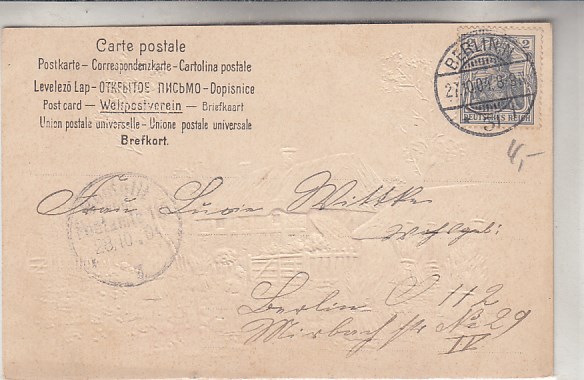 Carte postale
Postkarte – Correspondenzkarte – Cartolina postale
Levelező Lap – ОТКРЫТОЕ ПИСЬМО – Dopisnice
Post card — Weltpostverein — Briefkaart
Union postale universelle – Unione postale universale
Brefkort.
BERLIN N.
27.10.04. 8-9
31
2
DEUTSCHES REICH
4,-
28.10.04
Frau Lucie Wittke
Wohlgeb:
Berlin O 112
Mirbach str No 29
IV